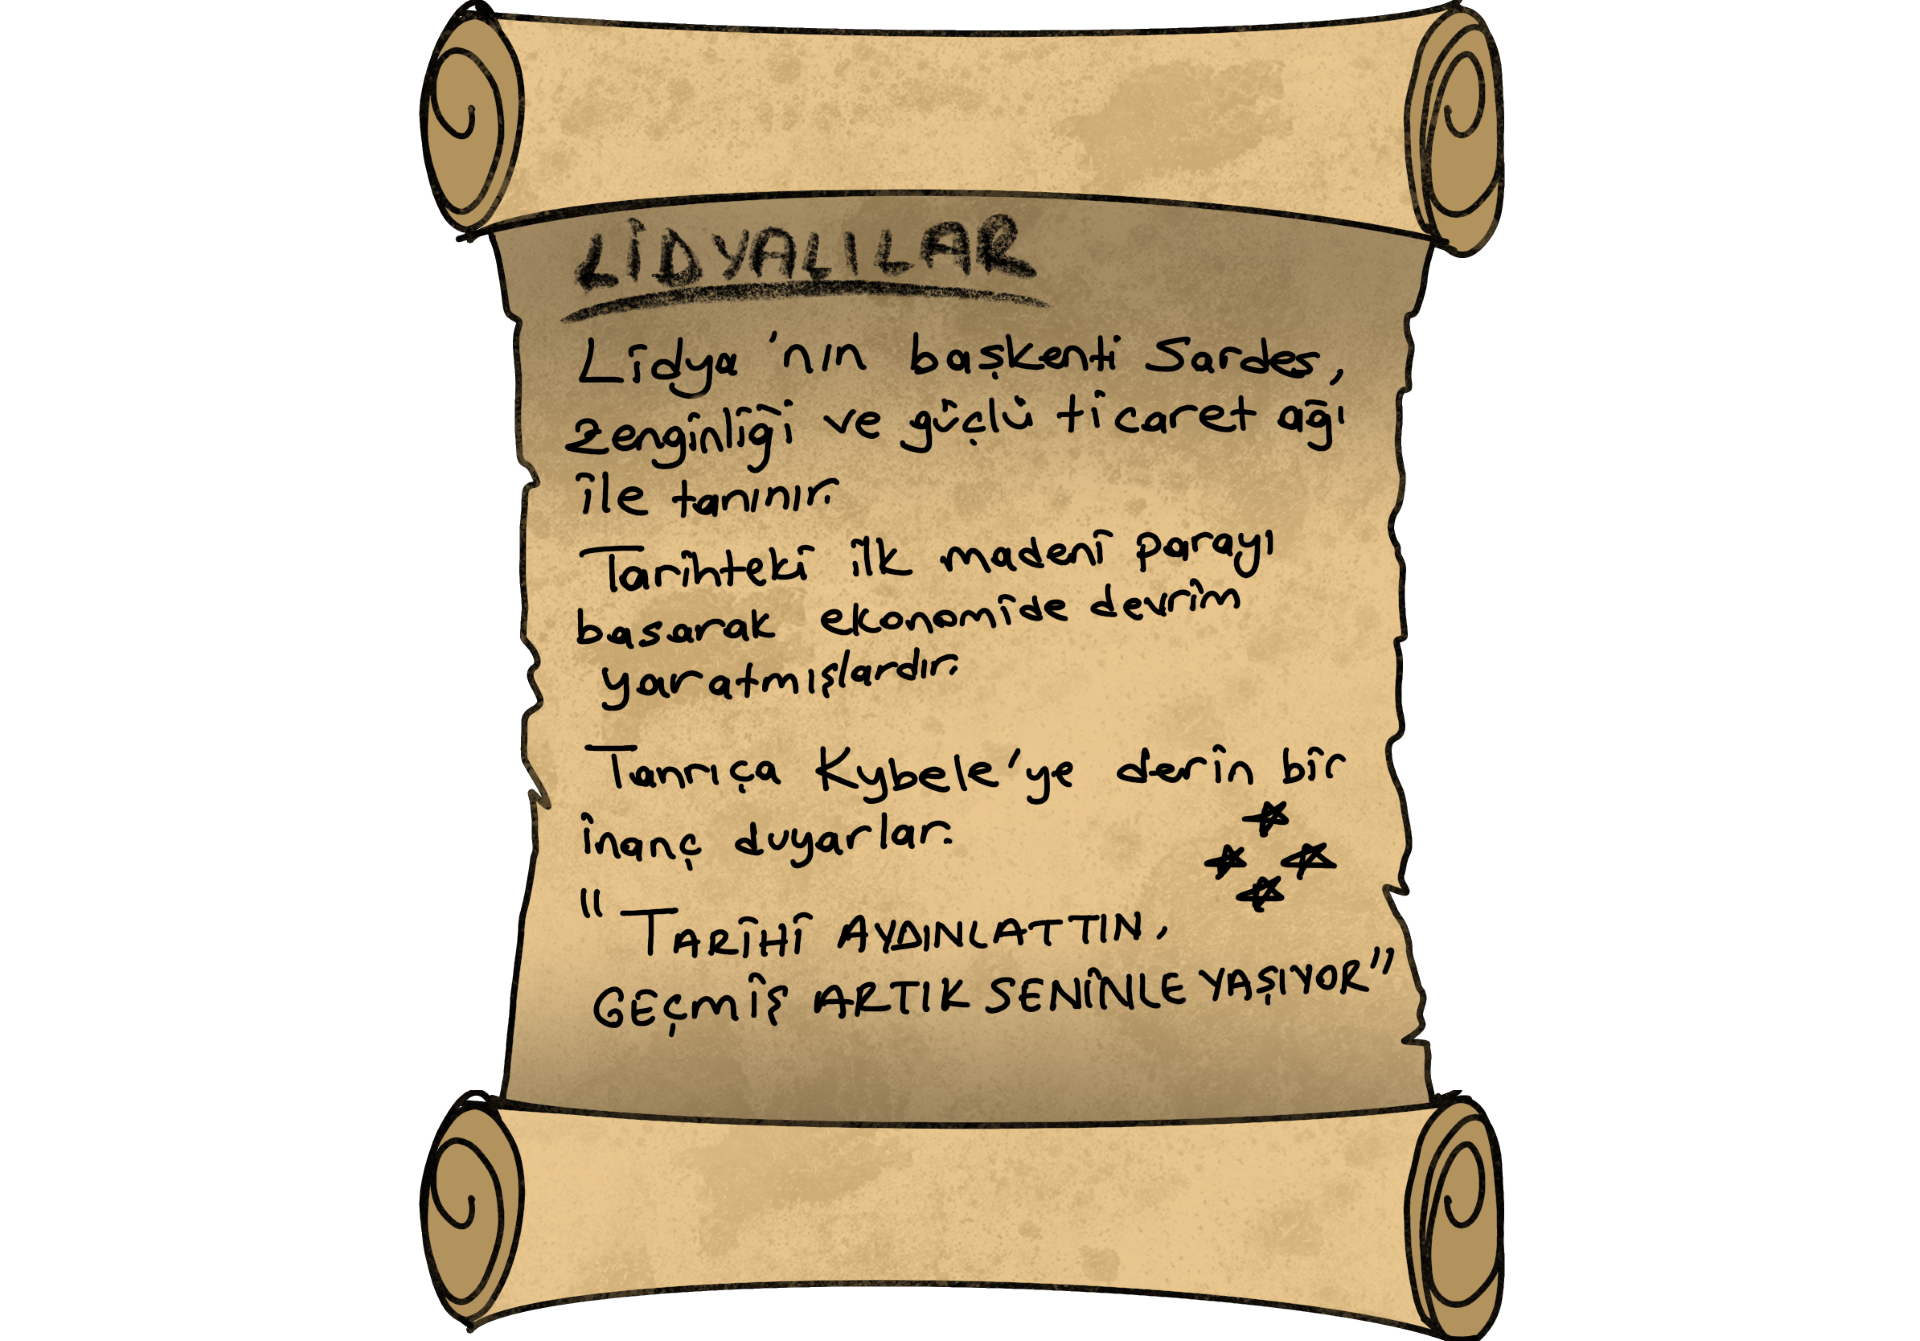 LİDYALILAR
Lidya'nın başkenti Sardes,
zenginliği ve güçlü ticaret ağı
ile tanınır.
Tarihteki ilk madeni parayı
basarak ekonomide devrim
yaratmışlardır.
Tanrıça Kybele'ye derin bir
inanç duyarlar.
"TARİHİ AYDINLATTIN,
GEÇMİŞ ARTIK SENİNLE YAŞIYOR"